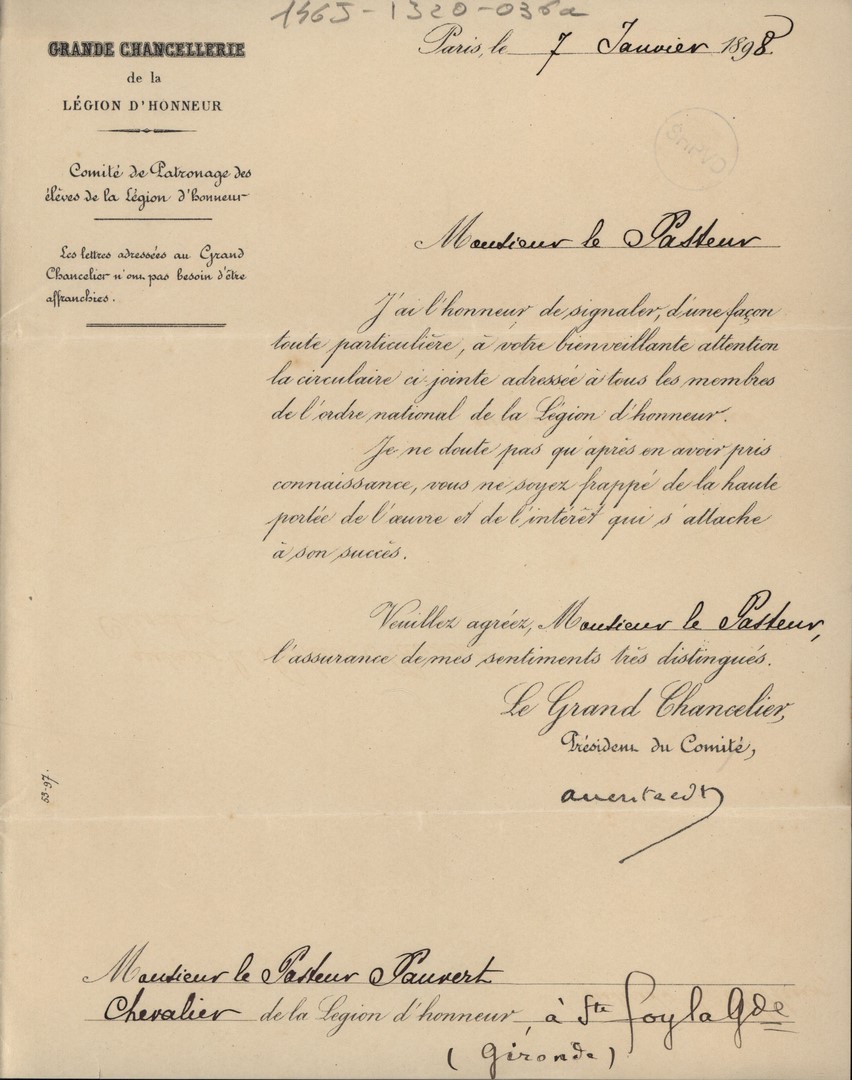 1965-1320-036a
GRANDE CHANCELLERIE
de la
LÉGION D'HONNEUR
Comité de Patronage des
élèves de la Légion d'honneur
Les lettres adressées au Grand
Chancelier n'ont pas besoin d'être
affranchies.
Paris, le 7 Janvier 1898
Monsieur le Pasteur
J'ai l'honneur de signaler, d'une façon
toute particulière, à votre bienveillante attention
la circulaire ci-jointe adressée à tous les membres
de l'ordre national de la Légion d'honneur.
Je ne doute pas qu'après en avoir pris
connaissance, vous ne soyez frappé de la haute
portée de l'œuvre et de l'intérêt qui s'attache
à son succès.
Veuillez agréez, Monsieur le Pasteur,
l'assurance de mes sentiments très distingués.
Le Grand Chancelier,
Président du Comité,
53-97.
Monsieur le Pasteur Pauvert
Chevalier de la Légion d'honneur, à Ste Foy la Gde
(Gironde)